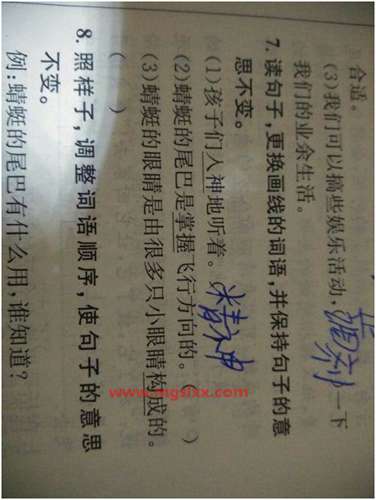 合适。
(3)我们可以搞些娱乐活动，调剂一下
我们的业余生活。
7. 读句子，更换画线的词语，并保持句子的意
思不变。
(1)孩子们入神地听着。 精神
(2)蜻蜓的尾巴是掌握飞行方向的。( )
(3)蜻蜓的眼睛是由很多只小眼睛构成的。
( )
8. 照样子，调整词语顺序，使句子的意思
不变。
例:蜻蜓的尾巴有什么用，谁知道?
www.mgsixx.com